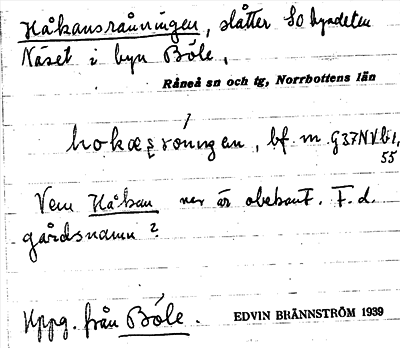 Håkansråningen, slåtter SO byadelen
Näset i byn Böle,
Råneå sn och tg, Norrbottens län
bf. m. G37NVb1,
55
Vem Håkan var är obekant. F. d.
gårdsnamn?
Uppg. från Böle. EDVIN BRÄNNSTRÖM 1939